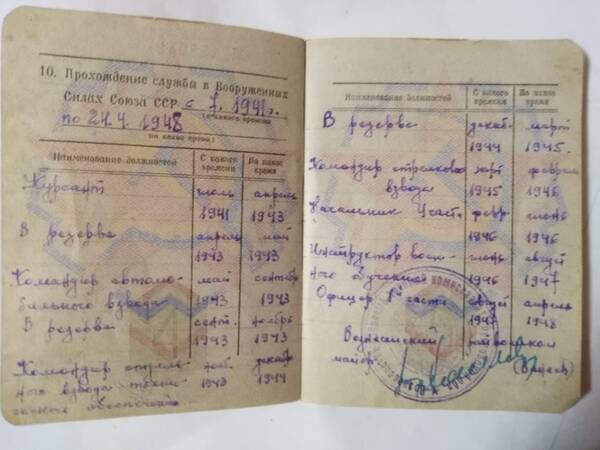 10. Прохождение службы в Вооруженных
Силах Союза ССР с 7. 1941 г.
(с какого времени
по 24.4. 1948
по какое время)
Наименование должностей
С какого времени
По какое время
Курсант июль апрель
1941 1943
В резерве апрель май
1943 1943
Командир автомо- май сентябр
бильного взвода 1943 1943
В резерве сент. ноябрь
1943 1943
Командир отдель- нояб. декабр
ного взвода техни- 1943 1944
Наименование должностей
С какого времени
По какое время
В резерве декаб. март
1944 1945.
Командир стрелкового март феврал
взвода 1945 1946
Начальник I част. февр. июнь
1946 1946
Инструктор воен- июнь август
ного обучения 1946 1947
Офицер 1й части август апрель
1947 1948
Вознесенский райвоенком
майор